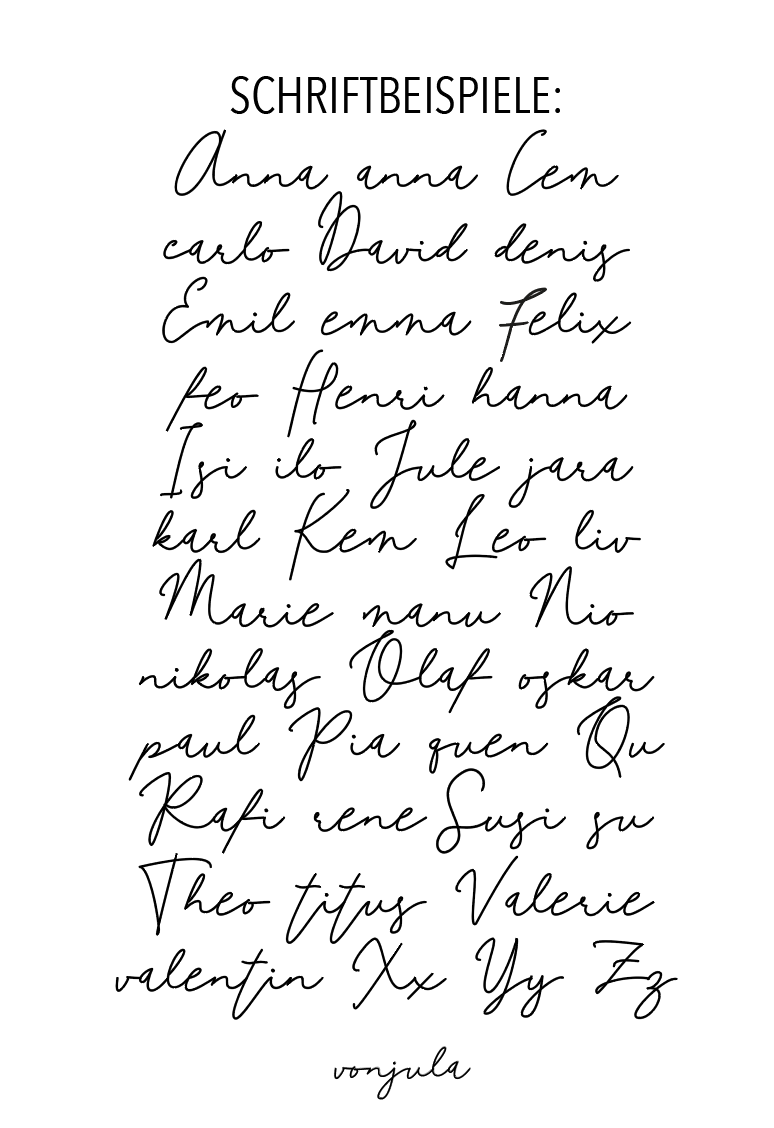 SCHRIFTBEISPIELE:
Anna anna Cem
carlo David denis
Emil emma Felix
feo Henri hanna
Isi ilo Jule jara
karl Kem Leo liv
Marie manu Nio
nikolas Olaf oskar
paul Pia quen Qu
Rafi rene Susi su
Theo titus Valerie
valentin Xx Yy Zz
vonjula